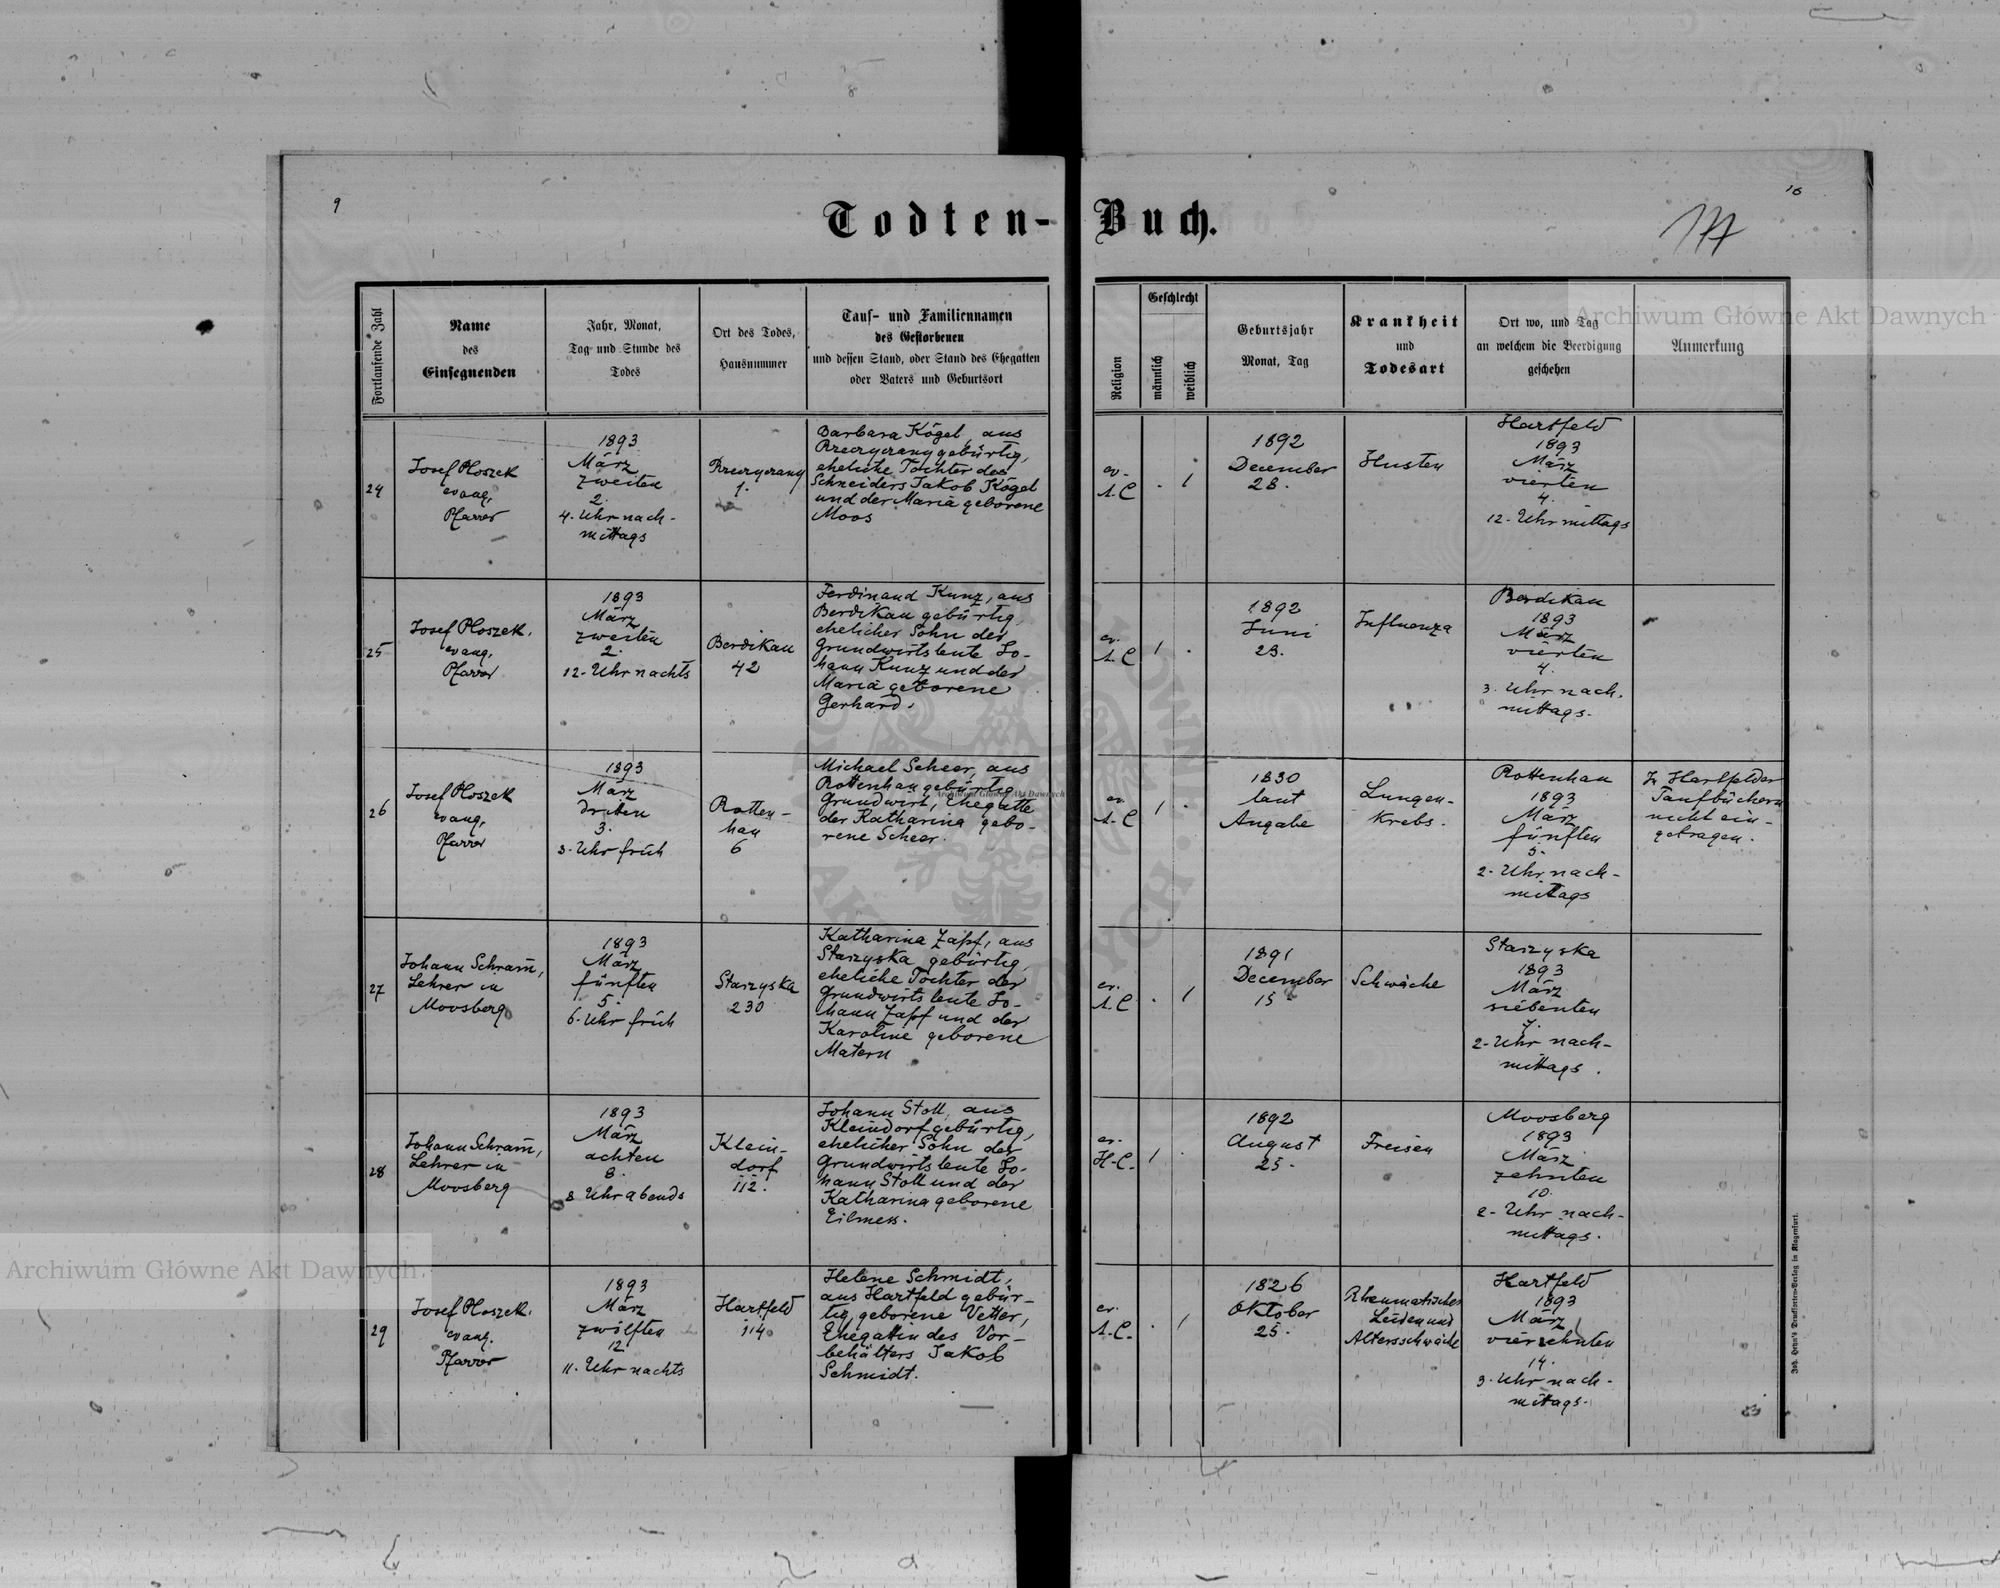 9
Todten-
Buch.
16
Archiwum Główne Akt Dawnych
Fortlaufende Zahl
Name
des
Einsegnenden
Jahr, Monat,
Tag und Stunde des
Todes
Ort des Todes,
Hausnummer
Tauf- und Familiennamen
des Gestorbenen
und dessen Stand, oder Stand des Ehegatten
oder Vaters und Geburtsort
Religion
Geschlecht
männlich
weiblich
Geburtsjahr
Monat, Tag
Krankheit
und
Todesart
Ort wo, und Tag
an welchem die Beerdigung
geschehen
Anmerkung
24
Josef Ploszek
evang.
Pfarrer
1893
März
zweiten
2.
4. Uhr nach-
mittags
1.
Barbara Kögel, aus
gebürtig,
eheliche Tochter des
Schneiders Jakob Kögel
und der Maria geborene
Moos
ev.
A.C
. 1
1892
December
28.
Husten
Hartfeld
1893
März
vierten
4.
12. Uhr mittags
25
Josef Ploszek.
evang.
Pfarrer
1893
März
zweiten
2.
12. Uhr nachts
Berdikau
42
Ferdinand Kunz, aus
Berdikau gebürtig,
ehelicher Sohn der
Grundwirtsleute Jo-
hann Kunz und der
Maria geborene
Gerhard.
ev.
A.C
1 .
1892
Juni
Influenza
Berdikau
1893
März
vierten
4.
3. Uhr nach.
mittags.
26
Josef Ploszek
evang.
Pfarrer
1893
März
driten
3.
3. Uhr früh
Rotten-
han
6
Michael Scheer, aus
Rottenhan gebürtig,
Grundwirt, Ehegatte
der Katharina gebo-
rene Scheer.
Archiwum Główne Akt Dawnych
ev.
A.C
1 .
1830
laut
Angabe
Lungen-
krebs.
Rottenhan
1893
März
fünften
5.
2. Uhr nach-
mittags
In Hartfelder
Taufbüchern
nicht ein-
getragen.
27
Johann Schram̅,
Lehrer in
Moosberg
1893
März
fünften
5.
6. Uhr früh
Starzyska
230
Katharina Zapf, aus
Starzyska gebürtig,
eheliche Tochter der
Grundwirtsleute Jo-
hann Zapf und der
Karoline geborene
Matern
ev.
A.C
. 1
1891
December
15
Schwäche
Starzyska
1893
März
siebenten
7.
2. Uhr nach-
mittags.
28
Johann Schram̅,
Lehrer in
Moosberg
1893
März
achten
8.
8 Uhr abends
Klein-
dorf
112.
Johann Stoll, aus
Kleindorf gebürtig,
ehelicher Sohn der
Grundwirtsleute Jo-
hann Stoll und der
Katharina geborene
ev.
H.C.
1 .
1892
August
25.
Freisen
Moosberg
1893
März
zehnten
10.
2. Uhr nach-
mittags.
29
Josef Ploszek.
evang.
Pfarrer
1893
März
zwölften
12
11. Uhr nachts
Hartfeld
114
Helene Schmidt,
aus Hartfeld gebür-
tig, geborene Vetter,
Ehegattin des Vor-
behälters Jakob
Schmidt.
ev.
A.C.
. 1
1826
Oktober
25.
Rheumatisches
Leiden und
Altersschwäche
Hartfeld
1893
März
vierzehnten
14.
3. Uhr nach-
mittags.
Archiwum Główne Akt Dawnych